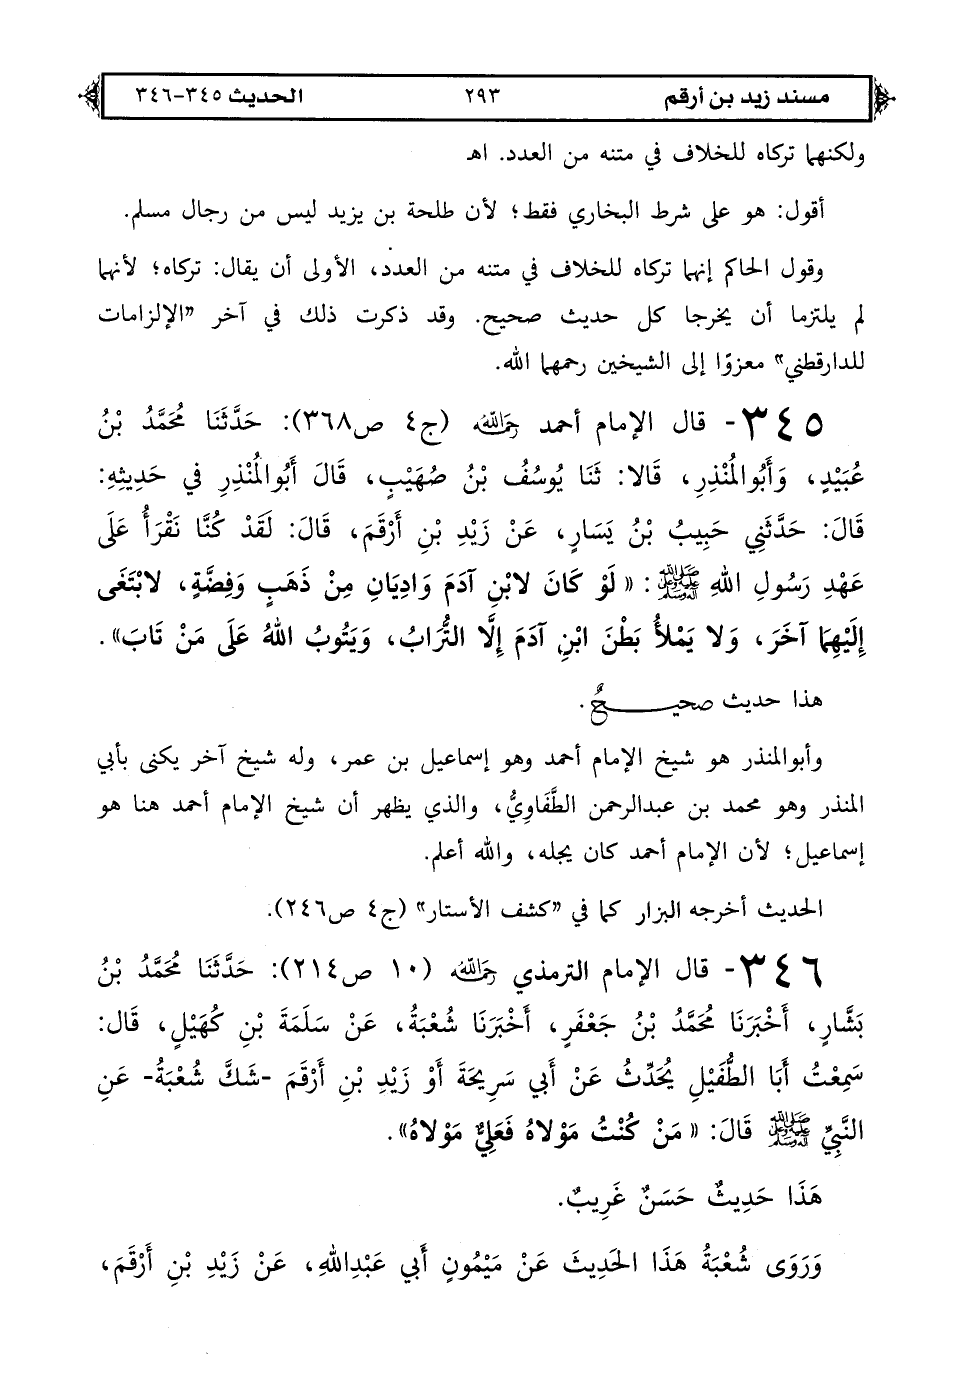 مسند زيد بن أرقم ٢٩٣ الحديث ٣٤٥-٣٤٦
ولكنهما تركاه للخلاف في متنه من العدد. اهـ
أقول: هو على شرط البخاري فقط؛ لأن طلحة بن يزيد ليس من رجال مسلم.
وقول الحاكم إنهما تركاه للخلاف في متنه من العدد، الأولى أن يقال: تركاه؛ لأنهما
لم يلتزما أن يخرجا كل حديث صحيح. وقد ذكرت ذلك في آخر "الإلزامات
للدارقطني" معزوًا إلى الشيخين رحمهما الله.
٣٤٥- قال الإمام أحمد رحمه الله (ج٤ ص٣٦٨): حَدَّثَنَا مُحَمَّدُ بْنُ
عُبَيْدٍ، وَأَبُوالْمُنْذِرِ، قَالا: ثَنَا يُوسُفُ بْنُ صُهَيْبٍ، قَالَ أَبُوالْمُنْذِرِ فِي حَدِيثِهِ:
قَالَ: حَدَّثَنِي حَبِيبُ بْنُ يَسَارٍ، عَنْ زَيْدِ بْنِ أَرْقَمَ، قَالَ: لَقَدْ كُنَّا نَقْرَأُ عَلَى
عَهْدِ رَسُولِ اللهِ ﷺ: «لَوْ كَانَ لابْنِ آدَمَ وَادِيَانِ مِنْ ذَهَبٍ وَفِضَّةٍ، لابْتَغَى
إِلَيْهِمَا آخَرَ، وَلا يَمْلأُ بَطْنَ ابْنِ آدَمَ إِلَّا التُّرَابُ، وَيَتُوبُ اللهُ عَلَى مَنْ تَابَ».
هذا حديث صحيحٌ.
وأبوالمنذر هو شيخ الإمام أحمد وهو إسماعيل بن عمر، وله شيخ آخر يكنى بأبي
المنذر وهو محمد بن عبدالرحمن الطَّفَاوِيُّ، والذي يظهر أن شيخ الإمام أحمد هنا هو
إسماعيل؛ لأن الإمام أحمد كان يجله، والله أعلم.
الحديث أخرجه البزار كما في "كشف الأستار" (ج٤ ص٢٤٦).
٣٤٦- قال الإمام الترمذي رحمه الله (١٠ ص٢١٤): حَدَّثَنَا مُحَمَّدُ بْنُ
بَشَّارٍ، أَخْبَرَنَا مُحَمَّدُ بْنُ جَعْفَرٍ، أَخْبَرَنَا شُعْبَةُ، عَنْ سَلَمَةَ بْنِ كُهَيْلٍ، قَال:
سَمِعْتُ أَبَا الطُّفَيْلِ يُحَدِّثُ عَنْ أَبِي سَرِيحَةَ أَوْ زَيْدِ بْنِ أَرْقَمَ -شَكَّ شُعْبَةُ- عَنِ
النَّبِيِّ ﷺ قَالَ: «مَنْ كُنْتُ مَوْلاهُ فَعَلِيٌّ مَوْلاهُ».
هَذَا حَدِيثٌ حَسَنٌ غَرِيبٌ.
وَرَوَى شُعْبَةُ هَذَا الحَدِيثَ عَنْ مَيْمُونٍ أَبِي عَبْدِاللهِ، عَنْ زَيْدِ بْنِ أَرْقَمَ،